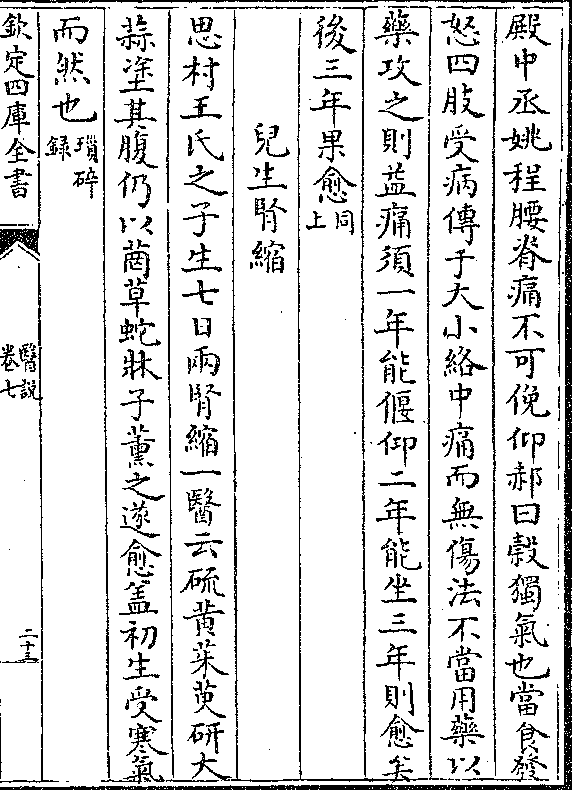 殿中丞姚程腰脊痛不可俛仰郝曰穀獨氣也當食發
怒四肢受病傳子大小絡中痛而無傷法不當用藥以
藥攻之則益痛須一年能偃仰二年能坐三年則愈矣
後三年果愈同上
兒生腎縮
思村王氏之子生七日兩腎縮一醫云硫黄茱萸研大
蒜塗其腹仍以䓢草蛇牀子薰之遂愈盖初生受寒氣
而然也瑣碎録
欽定四庫全書
醫説
卷七
二十三